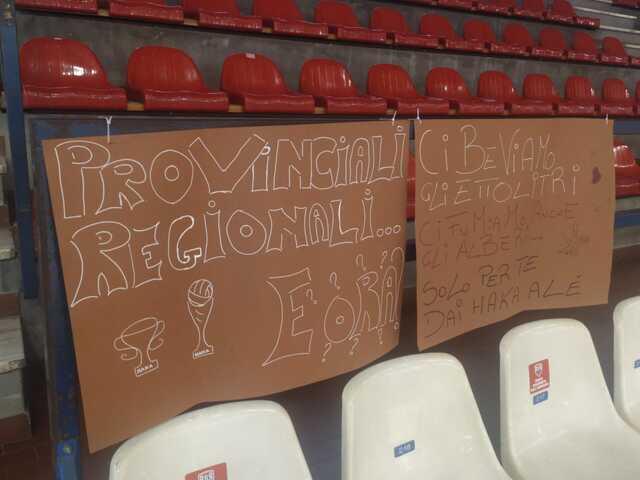 PROVINCIALI
REGIONALI...
E ORA
? ? ?
? ? ? ?
HAKA
HAKA
CI BEVIAMO
GLI ETTOLITRI
CI FUMIAMO ANCHE
GLI ALBERI
SOLO PER TE
DAI HAKA ALÉ